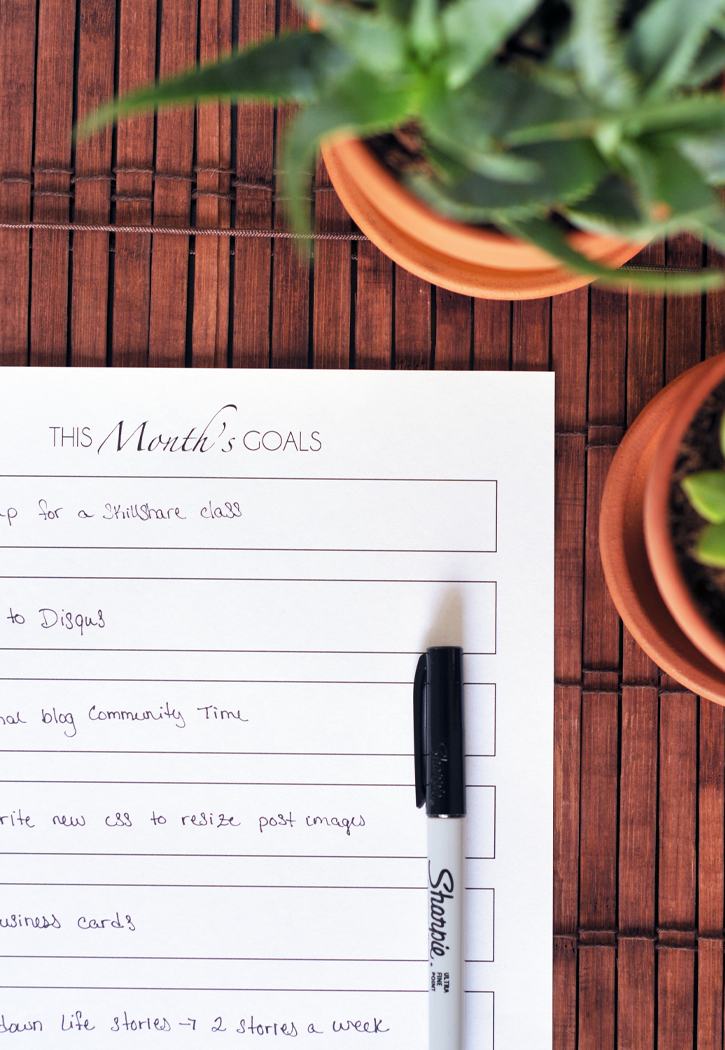 THIS Month's GOALS
up for a Skillshare class
to Disqus
blog Community Time
new css to resize post images
business cards
down Life Stories → 2 stories a week
Sharpie.
ULTRA
FINE
POINT